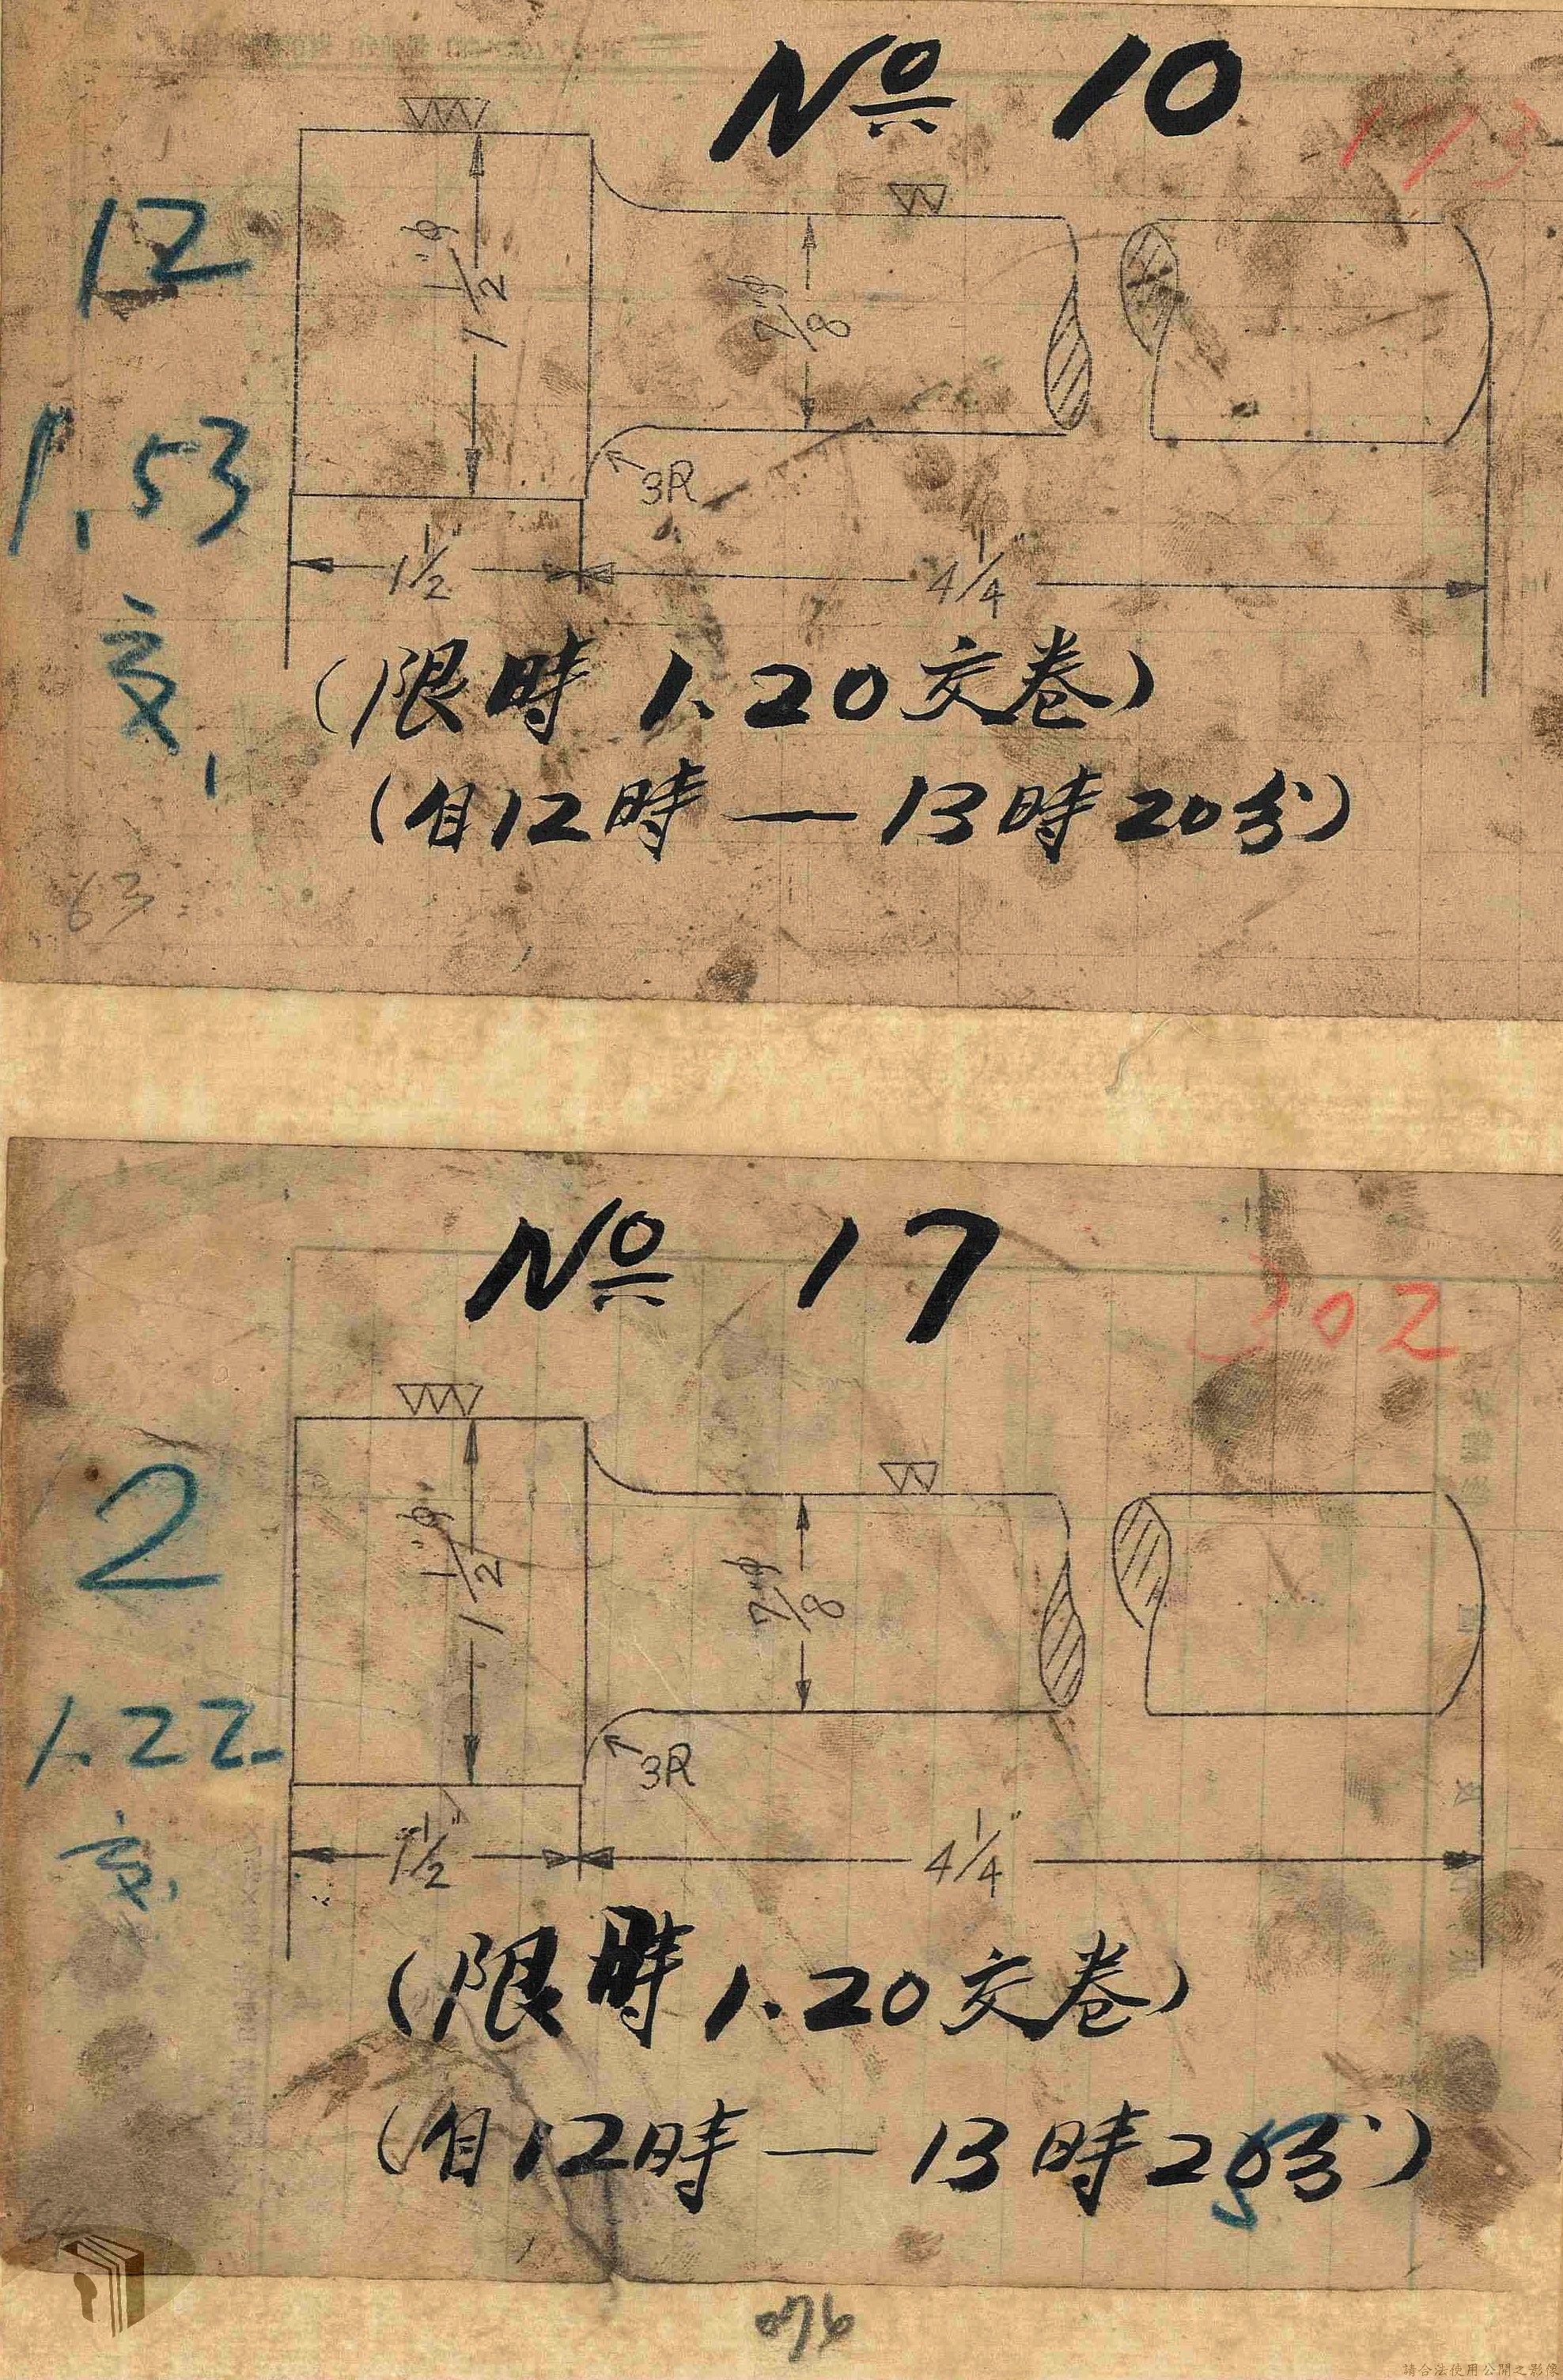 № 10
173
12
1.53
1 1/2"φ
7/8"φ
3R
1 1/2"
4 1/4"
(限時 1.20 交卷)
(自12時—13時20分)
63
№ 17
302
2
1.22
1 1/2"φ
7/8"φ
3R
1 1/2"
4 1/4"
(限時 1.20 交卷)
(自12時—13時25分)
請合法使用公開之影像